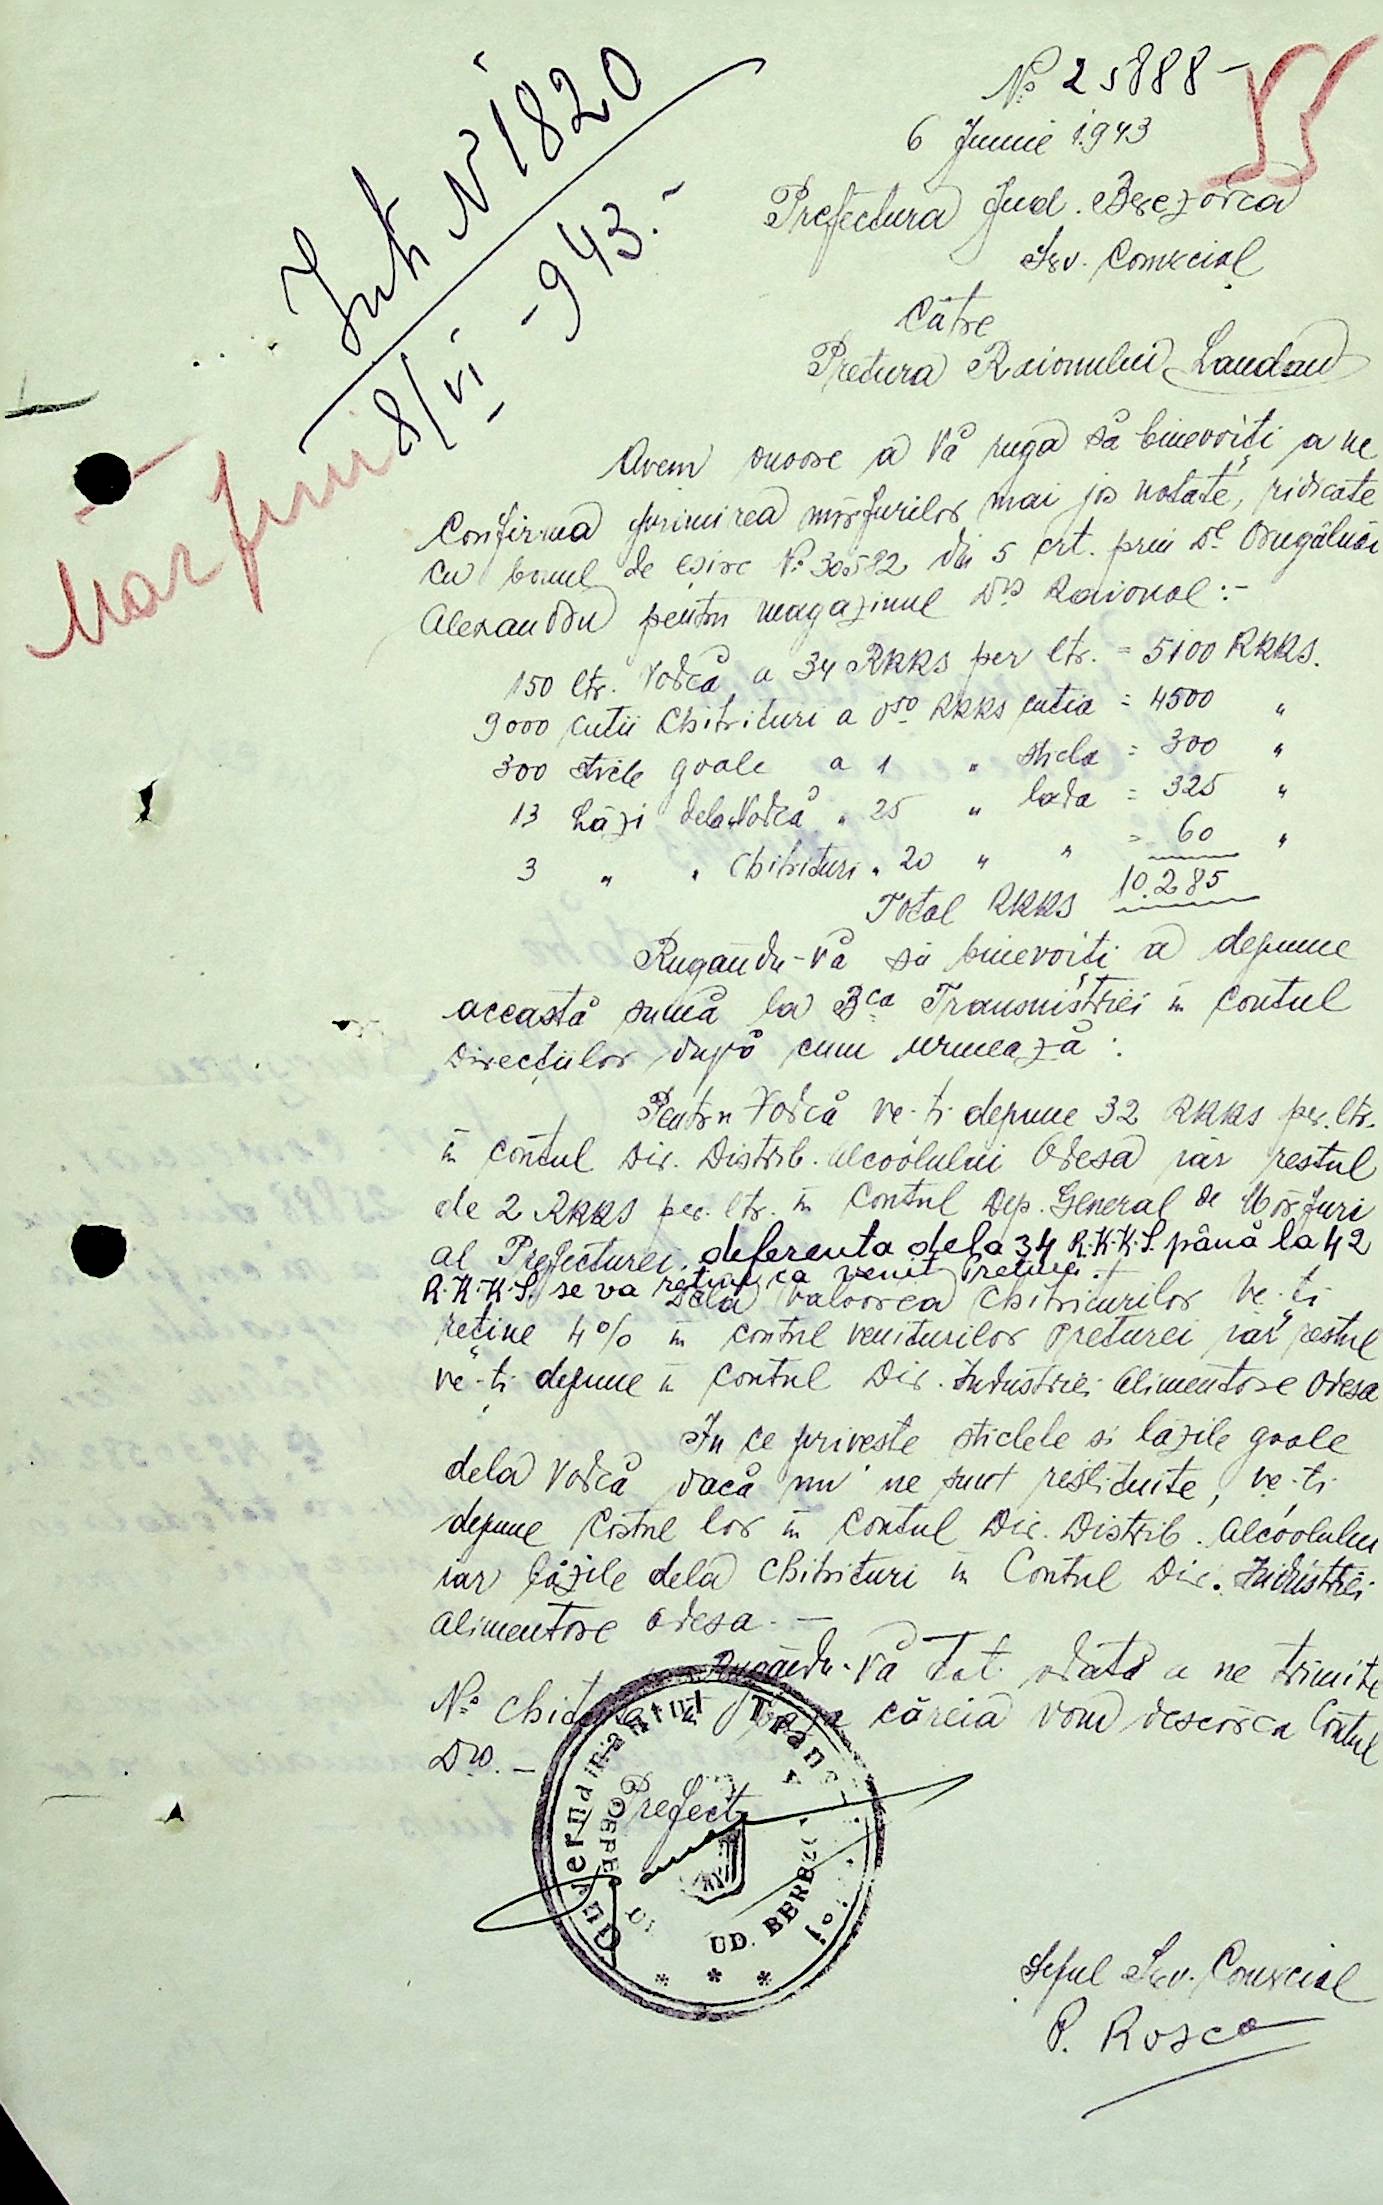 No 25888 -
55
6 Junie 1943
Prefectura Jud. Berezovca
Serv. Comercial
Către
Pretura Raionului Landau
Intr. No 1820
8/VI - 943.-
Avem onoare a Vă ruga să binevoiți a ne
Confirma primirea mărfurilor mai jos notate, ridicate
cu bonul de eșire No 30582 din 5 crt. prin Dl
Alexandru pentru magazinul Dvs Raional :-
150 ltr. Vodcă a 34 RKKS per ltr. = 5100 RKKS.
9000 cutii Chibrituri a 0,50 RKKS cutia = 4500 "
300 sticle goale a 1 " sticla = 300 "
13 Lăzi dela Vodcă " 25 " lada = 325 "
3 " " Chibrituri " 20 " " = 60 "
Total RKKS 10.285
Rugându-Vă să binevoiți a depune
această sumă la Bca Transnistriei în contul
Direcțiilor după cum urmează :
Pentru Vodcă ve-ți depune 32 RKKS per. ltr.
în contul Dir. Distrib. Alcoolului Odesa iar restul
de 2 RKKS per. ltr. în Contul Dep. General de Mărfuri
al Prefecturei. deferenta dela 34 R.K.K.S. până la 42
R.K.K.S. se va reține ca venit Preturei.
Dela valoarea Chibriturilor ve-ți
reține 4% în contul veniturilor Preturei iar restul
ve-ți depune în Contul Dir. Industriei Alimentare Odesa
In ce priveste sticlele si lăzile goale
dela Vodcă dacă nu ne sunt restituite, ve-ți
depune Costul lor în Contul Dir. Distrib. Alcoolului
iar lăzile dela Chibrituri în Contul Dir. Industriei
Alimentare Odesa. -
Rugându-Vă Tot odată a ne trimite
No căreia vom descărca Contul
Dvs. -
Prefect
Guvernământul
UD. BERE
Șeful Serv. Comercial
P. Rosca